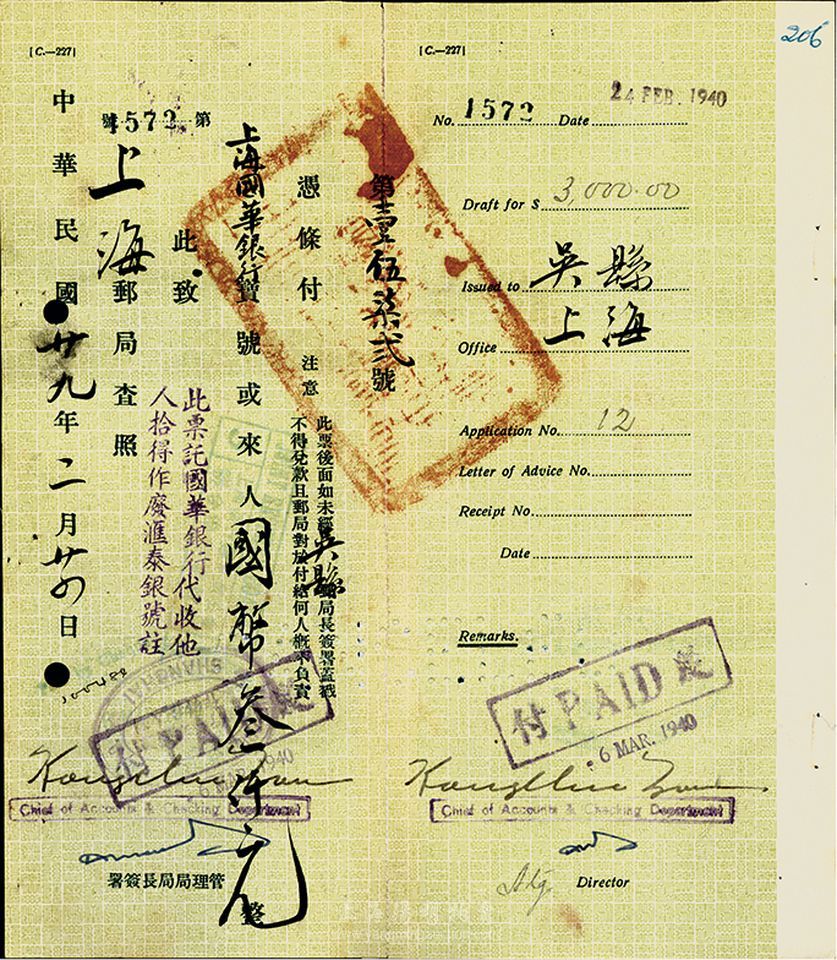 206
[C.—227]
第1572號
第壹伍柒弍號
憑條付
注意
此票後面如未經吳縣郵局長簽署蓋戳
不得兌款且郵局對於付給何人概不負責
上海國華銀行寶號或來人國幣叁仟元整
此致
上海郵局查照
此票託國華銀行代收他
人拾得作廢滙泰銀號註
中華民國廿九年二月廿四日
付 PAID 訖
6 MAR. 1940
Chief of Accounts & Checking Department
管理局局長簽署
[C.—227]
No. 1572 Date 24 FEB. 1940
Draft for $ 3,000.00
Issued to 吳縣
Office 上海
Application No. 12
Letter of Advice No.
Receipt No
Date
Remarks.
付 PAID 訖
6 MAR. 1940
Chief of Accounts & Checking Department
Actg. Director